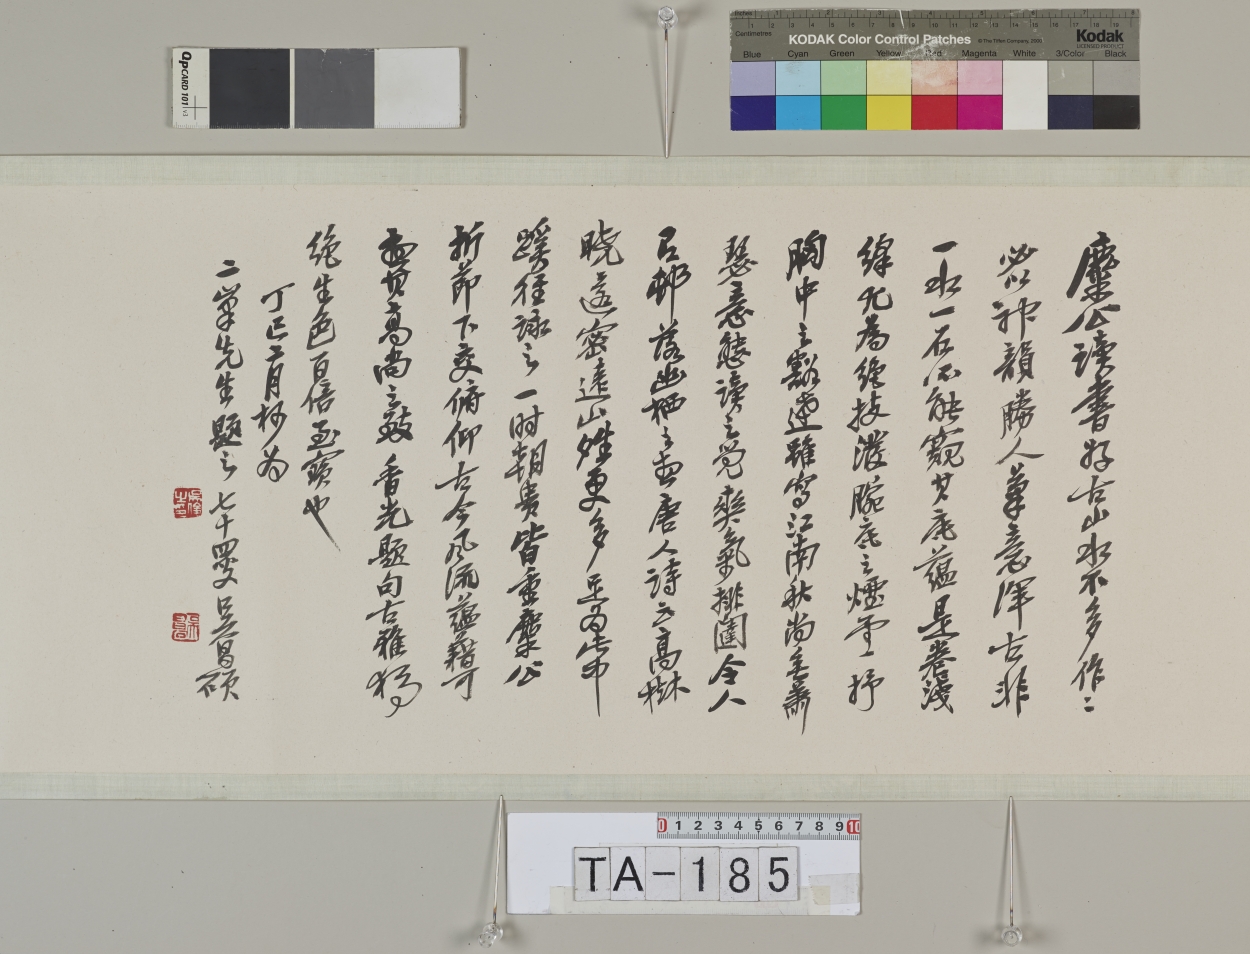 麋公讀書好古山水不多作〻
必以神韻勝人筆意渾古非
一水一石所能窺其底蘊是卷淺
絳尤為絕技潑腕底之煙雲一抒
胸中之豁達雖寫江南秋尚無蕭
瑟意態讀之覺爽氣排闥令人
邨落幽栖之唐人詩云高樹
曉還密遠山晴更多足為此
蹊徑詠之一時朝貴皆重麋公
折節下交俯仰古今風流蘊藉可
其高尚之致香光題句古雅
絕生色百倍至寶也
丁巳二月杪為
二峯先生題之七十四叟吳昌碩
QPCARD 101 v3
Inches
Centimetres
KODAK Color Control Patches
© The Tiffen Company, 2000
Kodak
LICENSED PRODUCT
Blue Cyan Green Yellow Red Magenta White 3/Color Black
0 1 2 3 4 5 6 7 8 9 10
TA-185